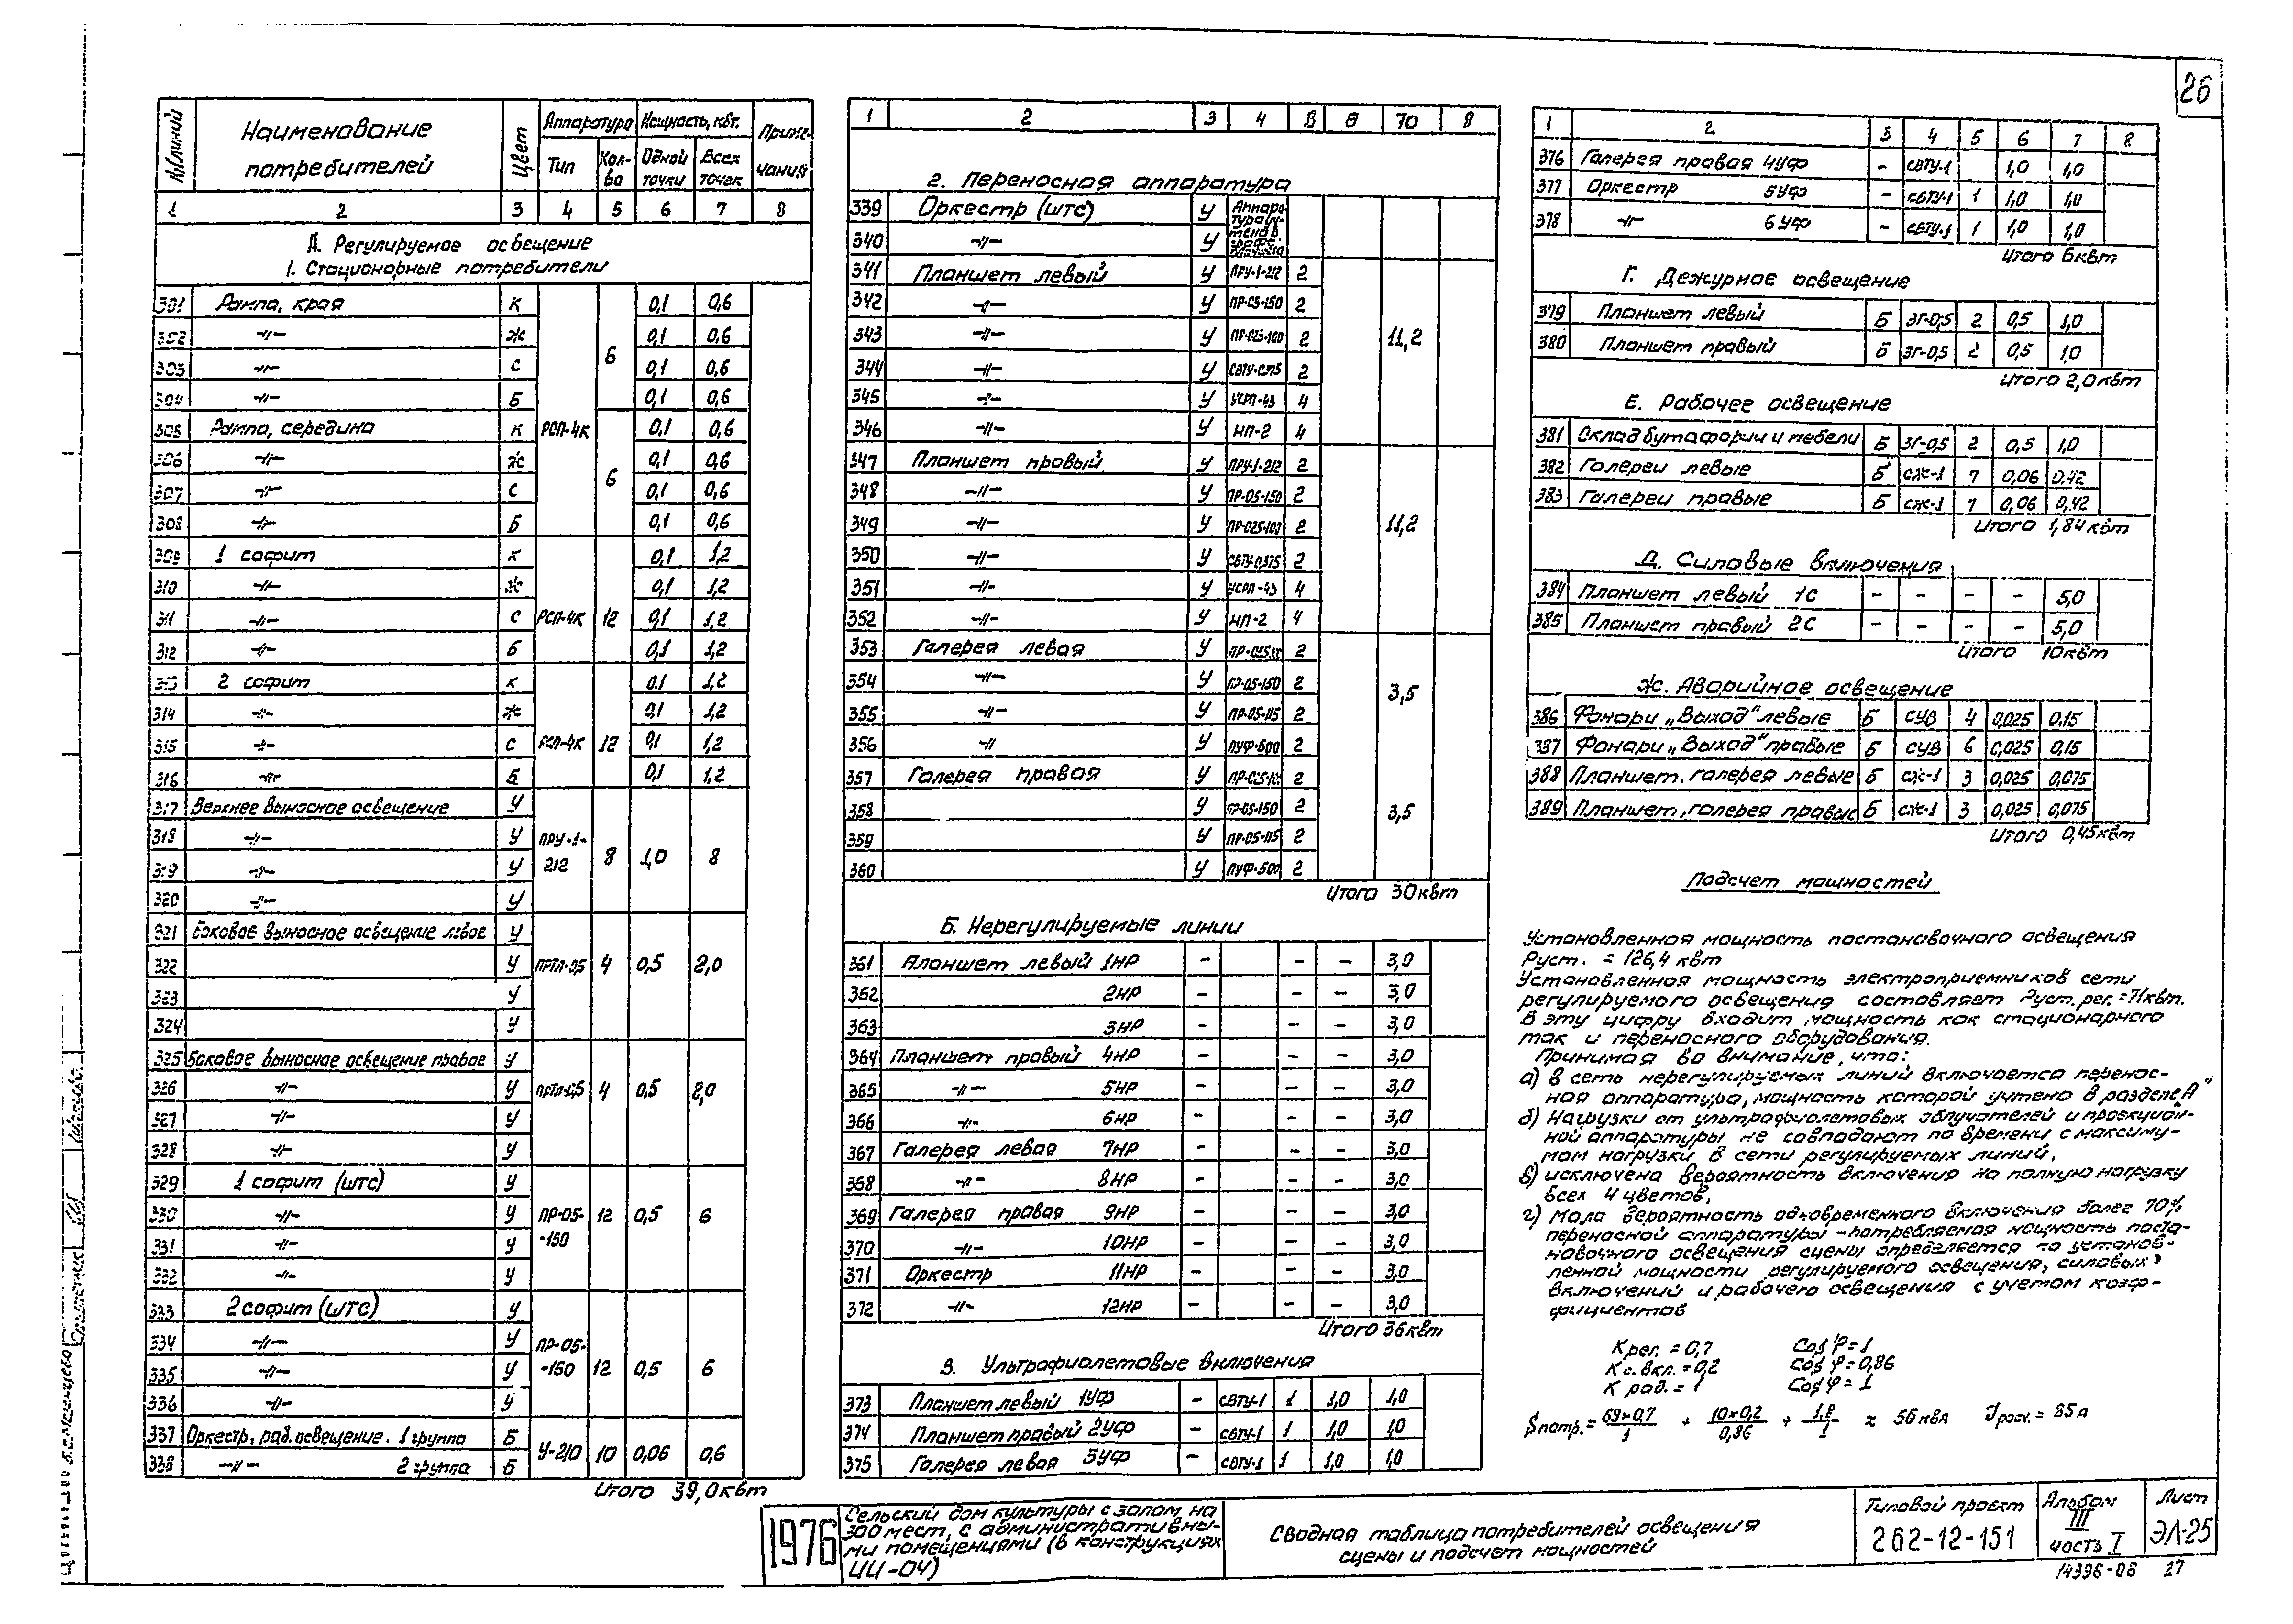 26
N линий | Наименование потребителей | Цвет | Аппаратура | Мощность, квт. | Приме-чания
Тип | Кол-во | Одной точки | Всех точек
1 | 2 | 3 | 4 | 5 | 6 | 7 | 8
А. Регулируемое освещение
1. Стационарные потребители
301 Рампа, края К 0,1 0,6
302 -//- Ж 0,1 0,6
303 -//- С 6 0,1 0,6
304 -//- Б 0,1 0,6
305 Рампа, середина К РСП-4К 0,1 0,6
306 -//- Ж 0,1 0,6
307 -//- С 6 0,1 0,6
308 -//- Б 0,1 0,6
309 1 софит К 0,1 1,2
310 -//- Ж 0,1 1,2
311 -//- С РСП-4К 12 0,1 1,2
312 -//- Б 0,1 1,2
313 2 софит К 0,1 1,2
314 -//- Ж 0,1 1,2
315 -//- С РСП-4К 12 0,1 1,2
316 -//- Б 0,1 1,2
317 Верхнее выносное освещение У
318 -//- У ПРУ-1-
319 -//- У 212 8 1,0 8
320 -//- У
321 Боковое выносное освещение левое У
322 У ПРТЛ-0,5 4 0,5 2,0
323 У
324 У
325 Боковое выносное освещение правое У
326 -//- У ПРТЛ-0,5 4 0,5 2,0
327 -//- У
328 -//- У
329 1 софит (ШТС) У
330 -//- У ПР-05- 12 0,5 6
331 -//- У -150
332 -//- У
333 2 софит (ШТС) У
334 -//- У ПР-05-
335 -//- У -150 12 0,5 6
336 -//- У
337 Оркестр, раб. освещение. 1 группа Б
338 -//- 2 группа Б У-210 10 0,06 0,6
Итого 39,0 квт
1 | 2 | 3 | 4 | В | 6 | 70 | 8
2. Переносная аппаратура
339 Оркестр (ШТС) У
340 -//- У
341 Планшет левый У ПРУ-1-212 2
342 -//- У ПР-05-150 2
343 -//- У ПР-025-100 2 11,2
344 -//- У 2
345 -//- У УСРП-43 4
346 -//- У НП-2 4
347 Планшет правый У ПРУ-1-212 2
348 -//- У ПР-05-150 2
349 -//- У 2 11,2
350 -//- У 2
351 -//- У УСРП-43 4
352 -//- У НП-2 4
353 Галерея левая У 2
354 -//- У ПР-05-150 2 3,5
355 -//- У ПР-05-115 2
356 -// У ПУФ-500 2
357 Галерея правая У 2
358 У ПР-05-150 2 3,5
359 У ПР-05-115 2
360 У ПУФ-500 2
Итого 30 квт
Б. Нерегулируемые линии
361 Планшет левый 1НР - - - 3,0
362 2НР - - - 3,0
363 3НР - - - 3,0
364 Планшет правый 4НР - - - 3,0
365 -//- 5НР - - - 3,0
366 -//- 6НР - - - 3,0
367 Галерея левая 7НР - - - 3,0
368 -//- 8НР - - - 3,0
369 Галерея правая 9НР - - - 3,0
370 -//- 10НР - - - 3,0
371 Оркестр 11НР - - - 3,0
372 -//- 12НР - - - 3,0
Итого 36 квт
В. Ультрафиолетовые включения
373 Планшет левый 1УФ - СВТУ-1 1 1,0 1,0
374 Планшет правый 2УФ - СВТУ-1 1 1,0 1,0
375 Галерея левая 3УФ - СВТУ-1 1 1,0 1,0
1 | 2 | 3 | 4 | 5 | 6 | 7 | 8
376 Галерея правая 4УФ - СВТУ-1 1,0 1,0
377 Оркестр 5УФ - СВТУ-1 1 1,0 1,0
378 -//- 6УФ - СВТУ-1 1 1,0 1,0
Итого 6 квт
Г. Дежурное освещение
379 Планшет левый Б ЗГ-0,5 2 0,5 1,0
380 Планшет правый Б ЗГ-0,5 2 0,5 1,0
Итого 2,0 квт
Е. Рабочее освещение
381 Склад бутафории и мебели Б ЗГ-0,5 2 0,5 1,0
382 Галереи левые Б СЖ-1 7 0,06 0,42
383 Галереи правые Б СЖ-1 7 0,06 0,42
Итого 1,84 квт
Д. Силовые включения
384 Планшет левый 1С - - - - 5,0
385 Планшет правый 2С - - - - 5,0
Итого 10 квт
Ж. Аварийное освещение
386 Фонари „Выход" левые Б СУВ 4 0,025 0,15
387 Фонари „Выход" правые Б СУВ 6 0,025 0,15
388 Планшет. галерея левые Б СЖ-1 3 0,025 0,075
389 Планшет, галерея правые Б СЖ-1 3 0,025 0,075
Итого 0,45 квт
Подсчет мощностей
Установленная мощность постановочного освещения
Руст. = 126,4 квт
Установленная мощность электроприемников сети
регулируемого освещения составляет Руст. рег. = 71 квт.
В эту цифру входит мощность как стационарного
так и переносного оборудования.
Принимая во внимание, что:
а) в сеть нерегулируемых линий включается перенос-
ная аппаратура, мощность которой учтено в разделе А"
б) Нагрузки от ультрафиолетовых облучателей и проекцион-
ной аппаратуры не совпадают по времени с максиму-
мом нагрузки в сети регулируемых линий,
в) исключена вероятность включения на полную нагрузку
всех 4 цветов,
г) Мала вероятность одновременного включения более 70%
переносной аппаратуры - потребляемая мощность поста-
новочного освещения сцены определяется по установ-
ленной мощности регулируемого освещения, силовых
включений и рабочего освещения с учетом коэф-
фициентов
К рег. = 0,7 Cos φ = 1
К с. вкл. = 0,2 Cos φ = 0,86
К раб. = 1 Cos φ = 1
S потр. = 69×0,7/1 + 10×0,2/0,86 + 1,8/1 ≈ 56 ква J расч. = 85 а
1976
Сельский дом культуры с залом на
300 мест, с административны-
ми помещениями (в конструкциях
ИИ-04)
Сводная таблица потребителей освещения
сцены и подсчет мощностей
Типовой проект
262-12-151
Альбом
III
часть I
Лист
ЭЛ-25
14396-06 27